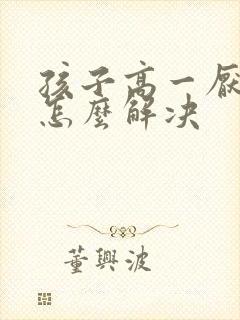 孩子高一厭
怎麼解决
董興波